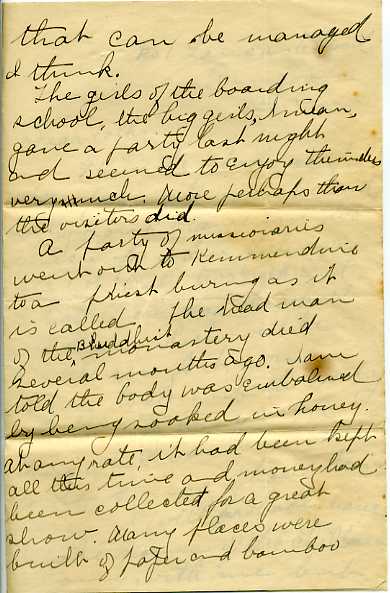 that can be managed
I think.
The girls of the boarding
school, the big girls, I mean,
gave a party last night
and seemed to enjoy themselves
very much. More perhaps than
the visitors did.
A party of missionaries
went out to Kemmendine
to a priest burning as it
is called. The dead man
of the Bhuddhist monastery died
several months ago. I am
told the body was embalmed
by being soaked in honey.
At any rate, it had been kept
all this time and money had
been collected for a great
show. Many places were
built of paper and bamboo